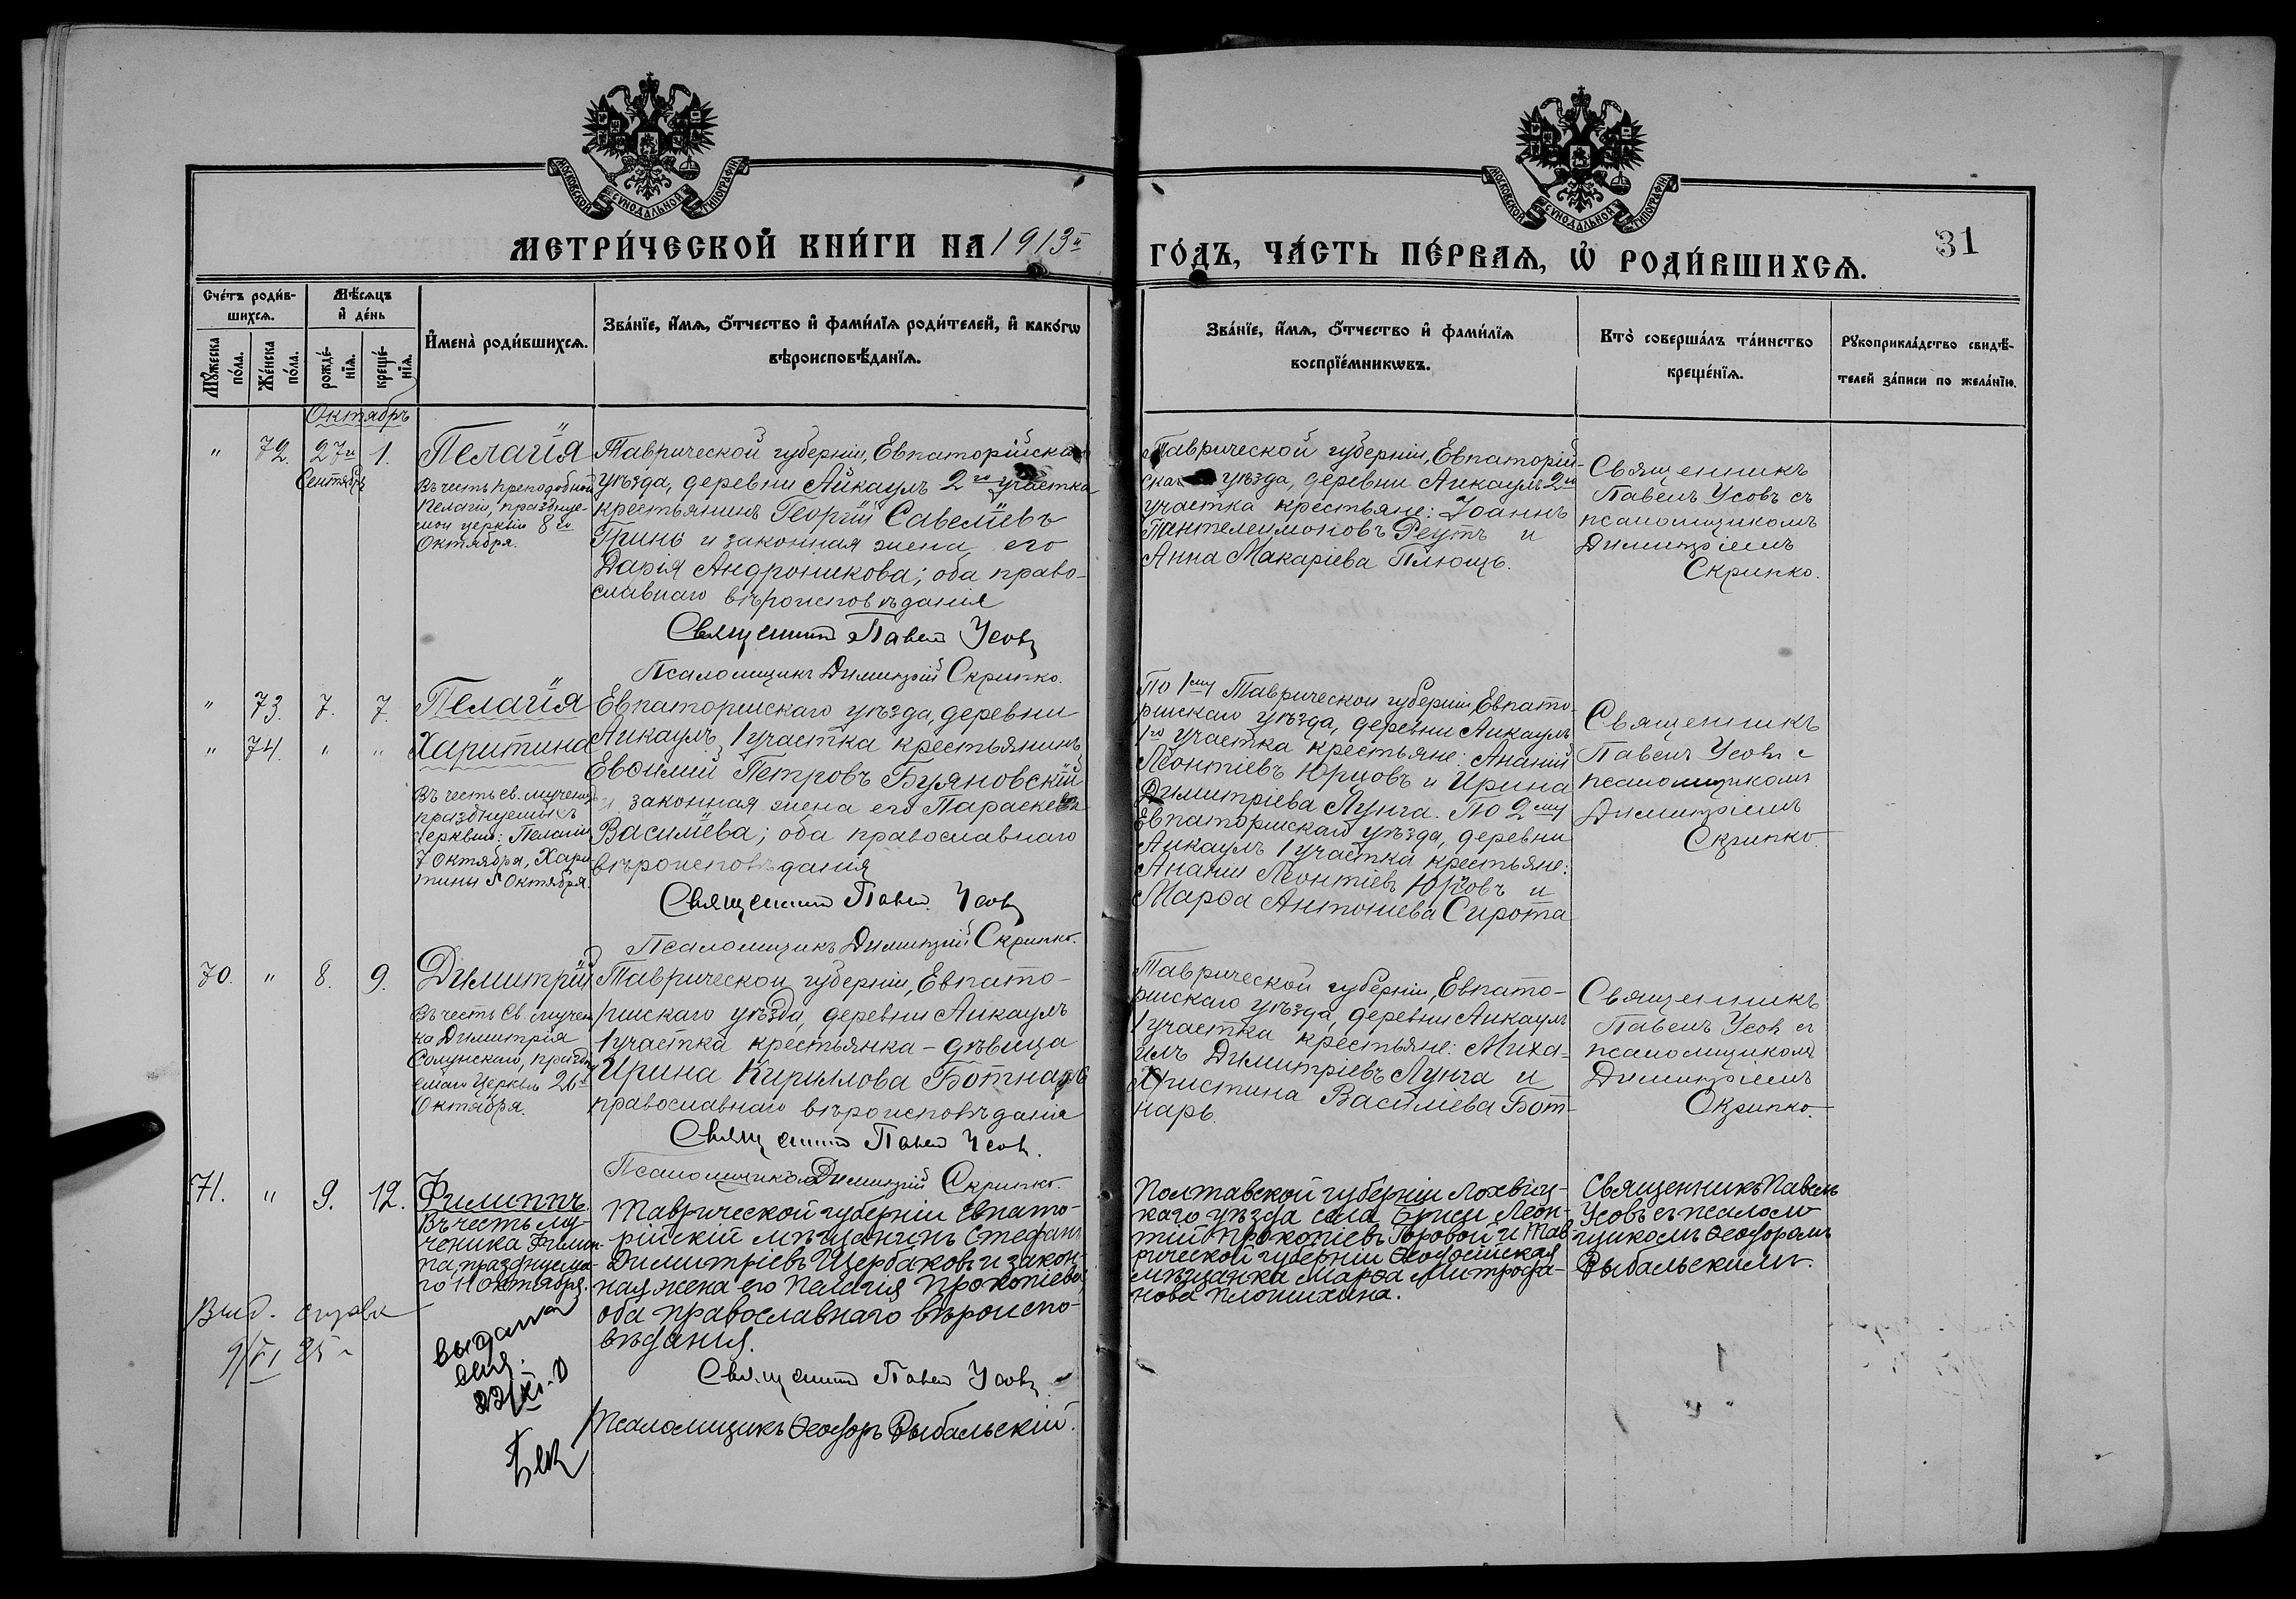 МОСКОВСКОЙ СѴНОДАЛЬНОЙ ТИПОГРАФІИ
МОСКОВСКОЙ СѴНОДАЛЬНОЙ ТИПОГРАФІИ
МЕТРИ́ЧЕСКОЙ КНИ́ГИ НА 1913й
ГО́ДЪ, ЧА́СТЬ ПЕ́РВАѦ, Ѡ҆ РОДИ́ВШИХСѦ.
31
Сче́тъ роди́в-
шихсѧ.
Мѣ́сѧцъ
и҆ де́нь
Мꙋ́жеска
по́ла.
Же́нска
по́ла.
рожде́-
нїѧ.
креще́-
нїѧ.
И҆мена̀ роди́вшихсѧ.
Зва́нїе, и҆́мѧ, ѻ҆́тчество и҆ фами́лїѧ роди́телей, и҆ како́гѡ
вѣроисповѣ́данїѧ.
Зва́нїе, и҆́мѧ, ѻ҆́тчество и҆ фами́лїѧ
воспрїе́мникѡвъ.
Кто̀ соверша́лъ та́инство
креще́нїѧ.
Рꙋкоприкла́дство свидѣ́-
телей за́писи по жела́нїю.
Октябрь
" 72. 27го 1.
Сентябрь
Пелагія
Въ честь Преподобной
Пелагіи, праздуе-
мой церковію 8го
Октября.
Таврической губерніи, Евпаторійска
уѣзда, деревни Айкаулъ 2го участка
крестьянинъ Георгій Савелiевъ
Гринь и законная жена его
Дарія Андроникова; оба право-
славнаго вѣроисповѣданія
Священникъ Павелъ Усовъ
Псаломщикъ Димитрій Скрипко.
Таврической губерніи, Евпаторій-
скаго уѣзда, деревни Айкаулъ 2го
участка крестьяне: Іоаннъ
Пантелеимоновъ Реутъ и
Анна Макаріева Плющъ.
Священникъ
Павелъ Усовъ съ
псаломщикомъ
Димитріемъ
Скрипко.
" 73. 7. 7.
" 74. " "
Пелагія
Харитина
Въ честь св. мучениц
празднуемыхъ
Церковію: Пелагіи
7 Октября, Хари-
тины 5 Октября.
Евпаторійскаго уѣзда, деревни
Айкаулъ, 1 участка крестьянинъ
Евѳимій Петровъ Буяновскій
и законная жена его Параскева
Василіева; оба православнаго
вѣроисповѣданія
Священникъ Павелъ Усовъ
Псаломщикъ Димитрій Скрипко.
По 1му Таврической губерніи, Евпато-
рійскаго уѣзда, деревни Айкаулъ
1го участка крестьяне: Ананій
Леонтіевъ Юрцовъ и Ирина
Димитріева Лунга. По 2му
Евпаторійскаго уѣзда, деревни
Айкаулъ 1 участка крестьяне:
Ананій Леонтіевъ Юрцовъ и
Марѳа Антоніева Сирота
Священникъ
Павелъ Усовъ с
псаломщикомъ
Димитріемъ
Скрипко.
70. " 8. 9.
Димитрій
Въ честь Св. Мучени
ка Димитрія
Солунскаго, праздну
емаго Церковью 26го
Октября.
Таврической губерніи, Евпато-
рійскаго уѣзда, деревни Айкаулъ
1 участка крестьянка - дѣвица
Ирина Кириллова Ботнарь
православнаго вѣроисповѣданія
Священникъ Павелъ Усовъ.
Псаломщикъ Димитрій Скрипко.
Таврической губерніи, Евпато-
рійскаго уѣзда, деревни Айкаулъ
1 участка крестьяне: Миха-
илъ Димитріевъ Лунга и
Христина Василіева Бот-
нарь.
Священникъ
Павелъ Усовъ съ
псаломщикомъ
Димитріемъ
Скрипко.
71. " 9. 12.
Филиппъ
Въ честь му-
ченика Филип-
па, празднуема-
го 11 октября.
Таврической губерніи Евпато-
рійскій мѣщанинъ Стефанъ
Димитріевъ Щербаковъ и закон-
ная жена его Пелагія Прокопіева,
оба православнаго вѣроиспо-
вѣданія.
Священникъ Павелъ Усовъ
Псаломщикъ Ѳеодоръ Рыбальскій.
Полтавской губерніи Лохвиц-
каго уѣзда села Леон-
тій Прокопіевъ Торовой и Тав-
рической губерніи Ѳеодосійская
мѣщанка Марѳа Митрофа-
нова Плотихина.
Священникъ Павелъ
Усовъ съ псалом-
щикомъ Ѳеодоромъ
Рыбальскимъ.
Выд. справка
9/VI 25 г
выдана
22/XI